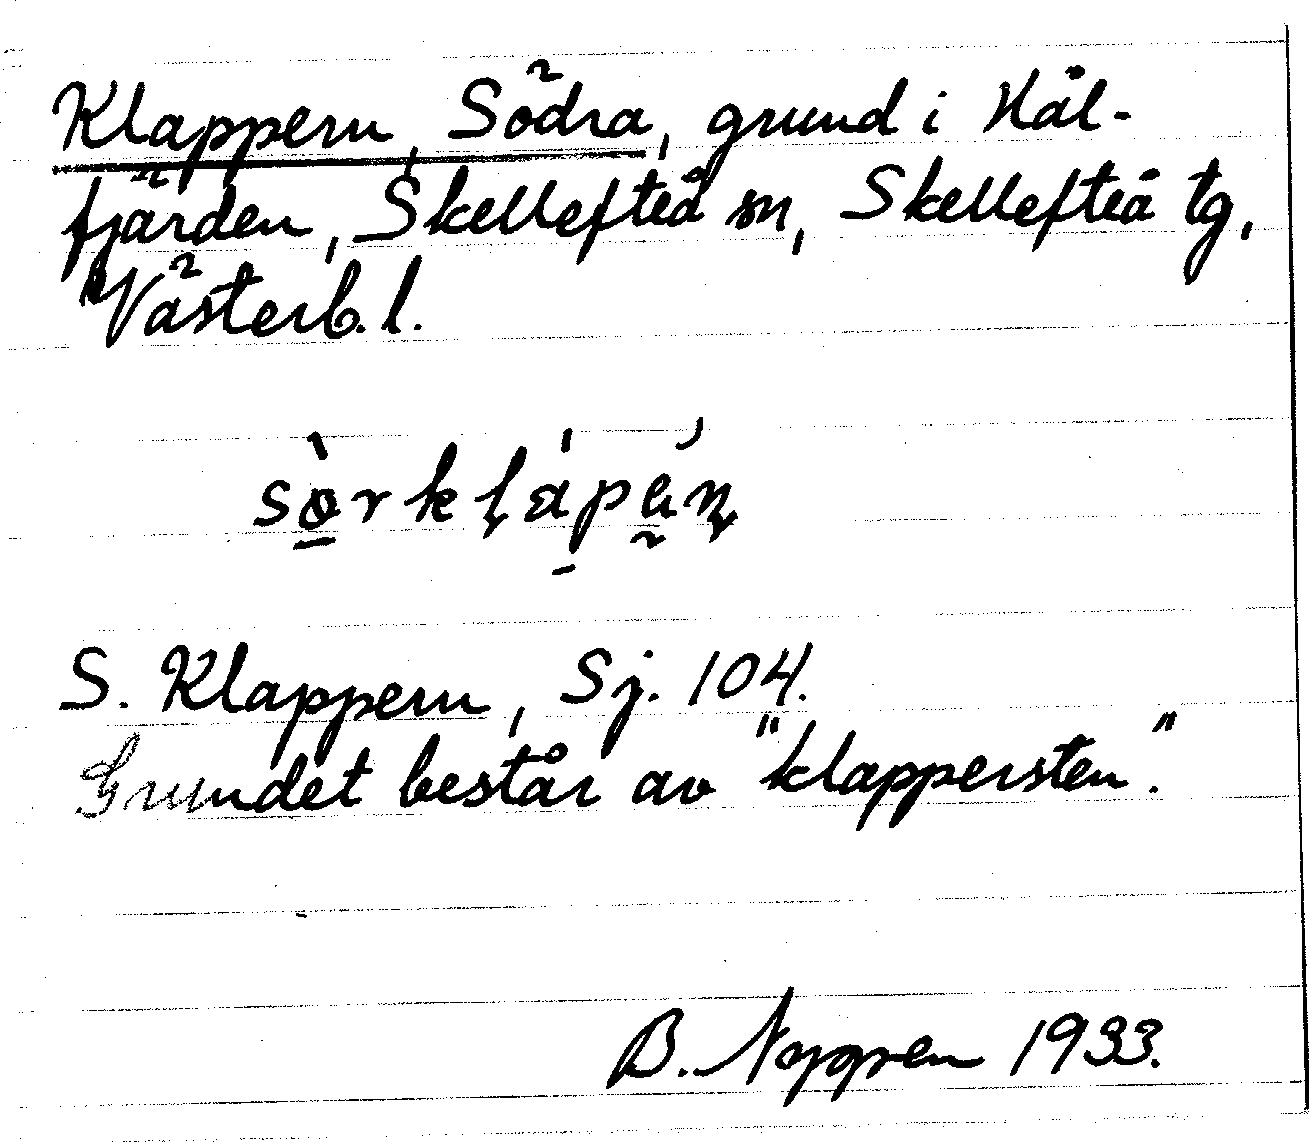 Klappern, Södra, grund i Hål-
fjärden, Skellefteå sn, Skellefteå tg,
Västerb. l.
S. Klappern, Sj. 104.
Grundet består av "klappersten".
B. Nygren 1933.